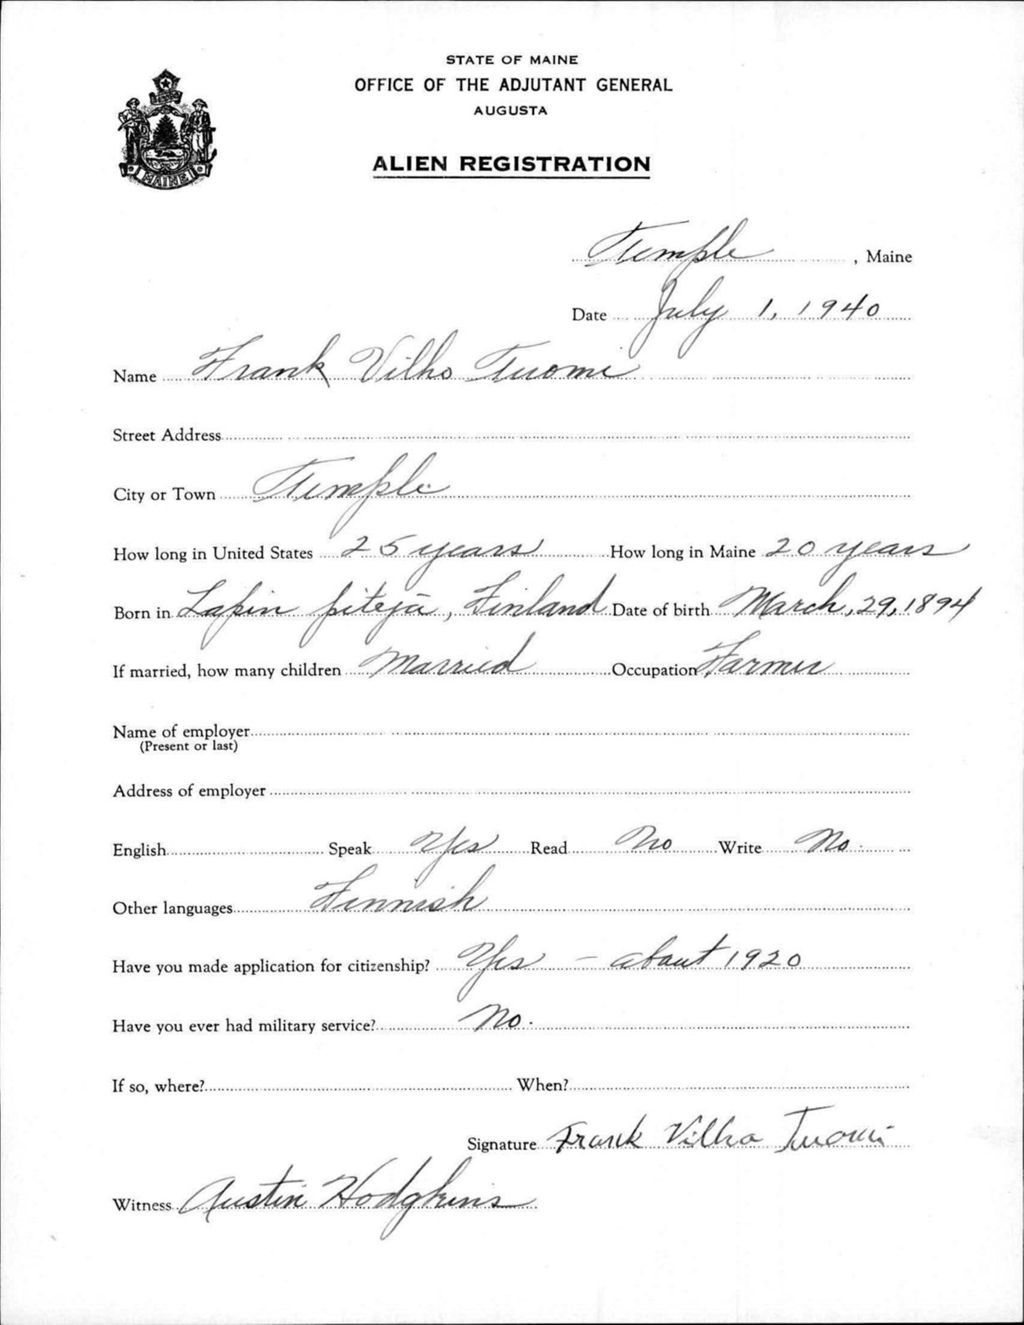 STATE OF MAINE
OFFICE OF THE ADJUTANT GENERAL
AUGUSTA
ALIEN REGISTRATION
MAINE
Temple, Maine
Date July 1, 1940
Name Frank Vilho Tuomi
Street Address
City or Town Temple
How long in United States 25 years How long in Maine 20 years
Born in Lapin pitejä, Finland Date of birth March, 29, 1894
If married, how many children Married Occupation Farmer
Name of employer
(Present or last)
Address of employer
English Speak Yes Read No Write No.
Other languages Finnish
Have you made application for citizenship? Yes - about 1920
Have you ever had military service? No.
If so, where? When?
Signature Frank Vilho Tuomi
Witness Austin Hodgkins